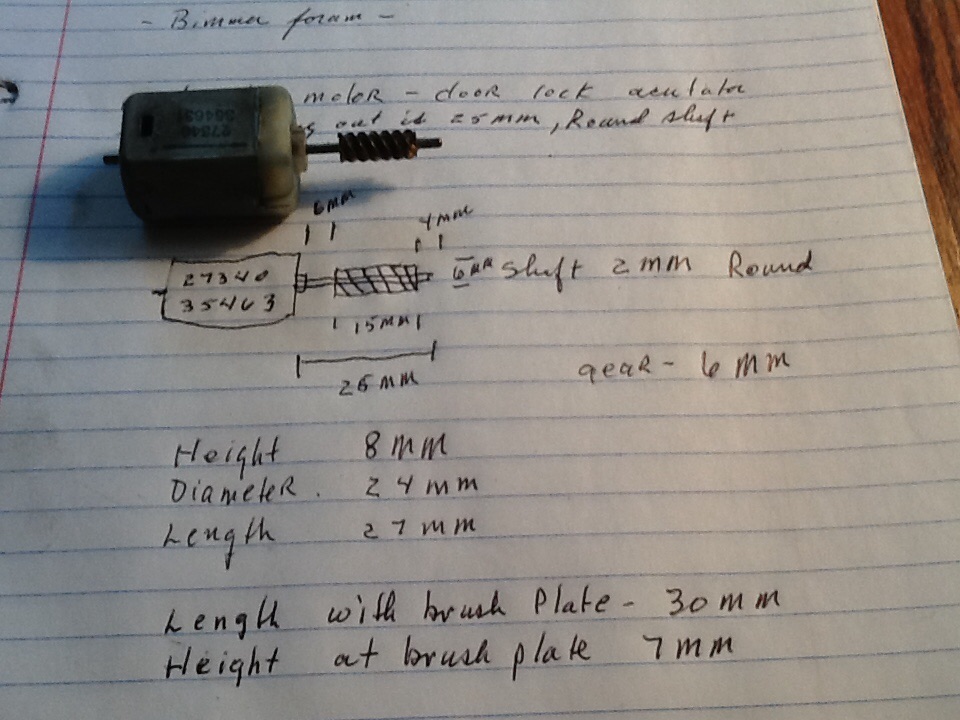 - Bimmer foram -
motor - door lock acutator
s out is 25mm, Round shaft
27340
6mm
4mm
27340
35463
6mm shaft 2mm Round
15mm
26mm
gear - 6mm
Height 8mm
Diameter. 24mm
Length 27mm
Length with brush Plate - 30mm
Height at brush plate 7mm